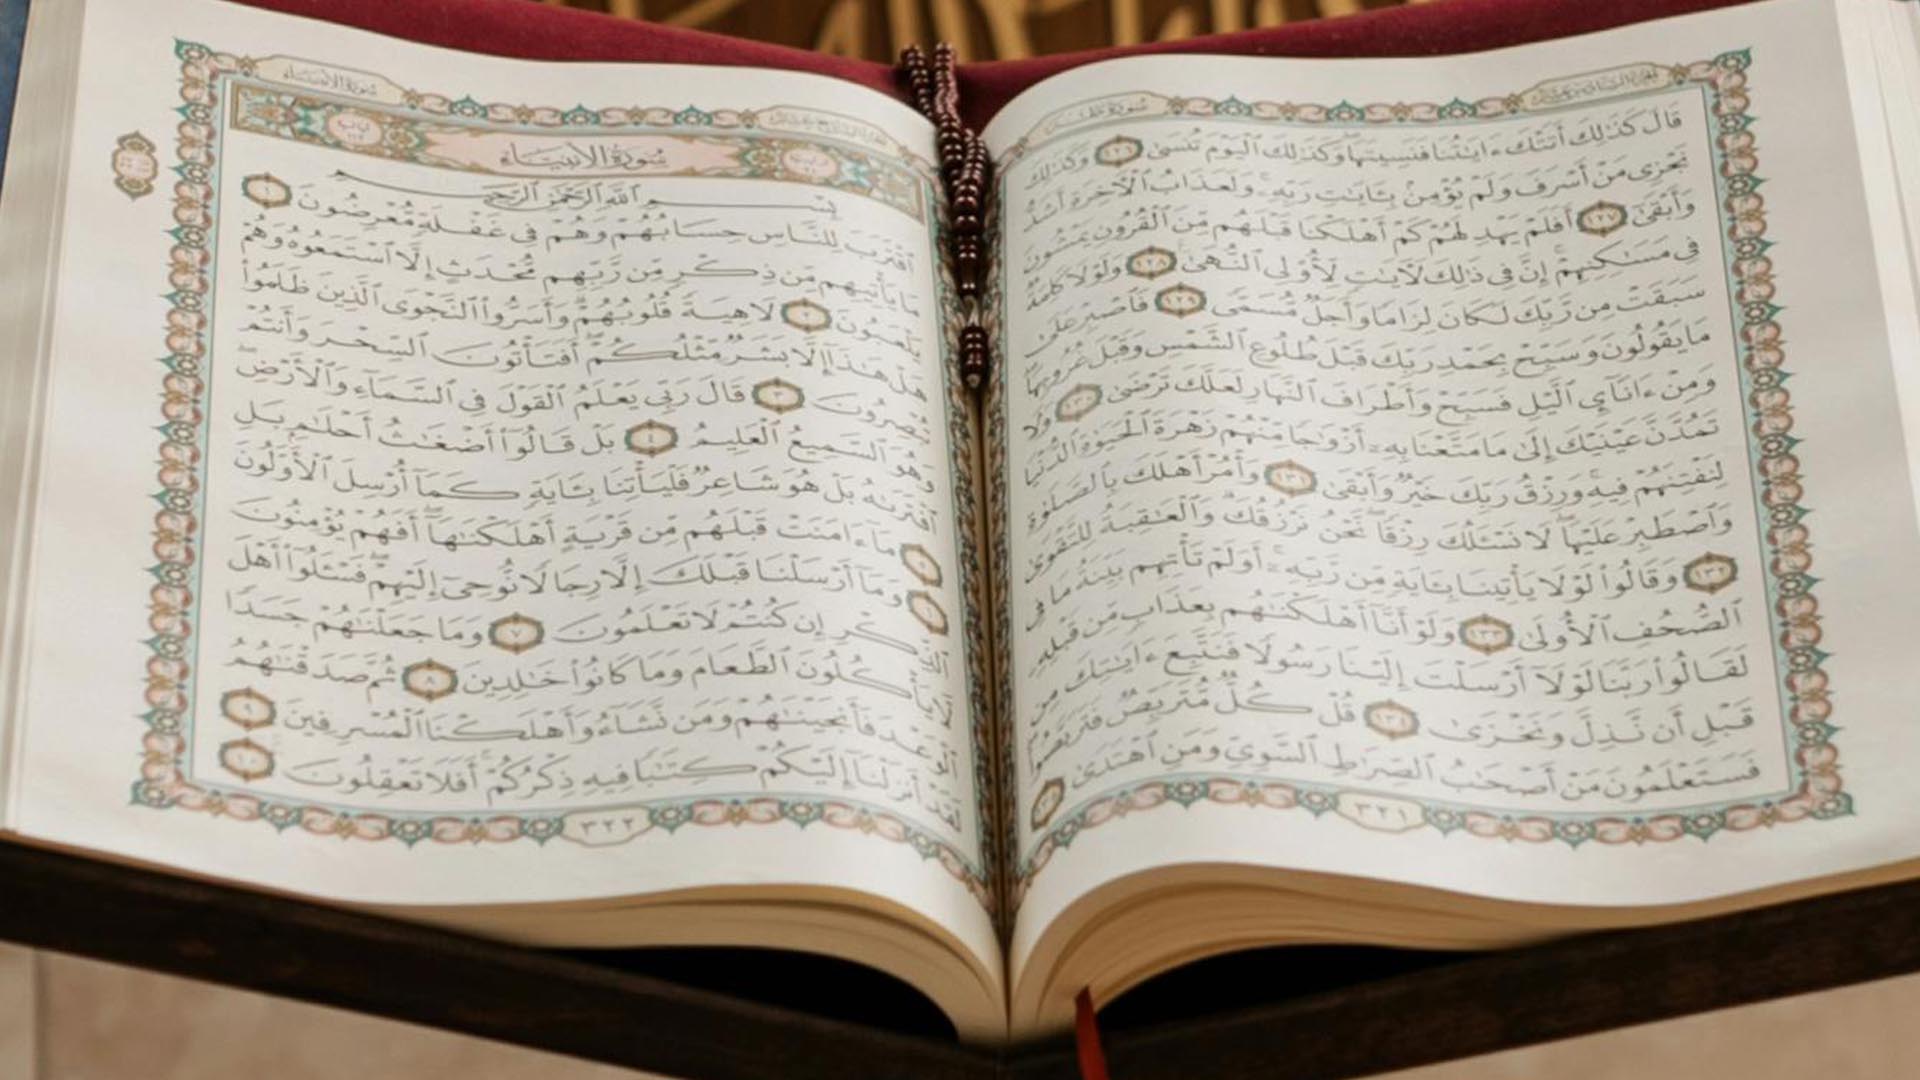 سُورَةُ طه
قَالَ كَذَٰلِكَ أَتَتْكَ ءَايَٰتُنَا فَنَسِيتَهَا وَكَذَٰلِكَ ٱلْيَوْمَ تُنسَىٰ ١٢٦ وَكَذَٰلِكَ
نَجْزِى مَنْ أَسْرَفَ وَلَمْ يُؤْمِنۢ بِـَٔايَٰتِ رَبِّهِۦ وَلَعَذَابُ ٱلْءَاخِرَةِ أَشَدُّ
وَأَبْقَىٰٓ ١٢٧ أَفَلَمْ يَهْدِ لَهُمْ كَمْ أَهْلَكْنَا قَبْلَهُم مِّنَ ٱلْقُرُونِ يَمْشُونَ
فِى مَسَٰكِنِهِمْ إِنَّ فِى ذَٰلِكَ لَءَايَٰتٍ لِّأُو۟لِى ٱلنُّهَىٰ ١٢٨ وَلَوْلَا كَلِمَةٌ
سَبَقَتْ مِن رَّبِّكَ لَكَانَ لِزَامًا وَأَجَلٌ مُّسَمًّى ١٢٩ فَٱصْبِرْ عَلَىٰ
مَا يَقُولُونَ وَسَبِّحْ بِحَمْدِ رَبِّكَ قَبْلَ طُلُوعِ ٱلشَّمْسِ وَقَبْلَ غُرُوبِهَا
وَمِنْ ءَانَآئِ ٱلَّيْلِ فَسَبِّحْ وَأَطْرَافَ ٱلنَّهَارِ لَعَلَّكَ تَرْضَىٰ ١٣٠ وَلَا
تَمُدَّنَّ عَيْنَيْكَ إِلَىٰ مَا مَتَّعْنَا بِهِۦٓ أَزْوَٰجًا مِّنْهُمْ زَهْرَةَ ٱلْحَيَوٰةِ ٱلدُّنْيَا
لِنَفْتِنَهُمْ فِيهِ وَرِزْقُ رَبِّكَ خَيْرٌ وَأَبْقَىٰ ١٣١ وَأْمُرْ أَهْلَكَ بِٱلصَّلَوٰةِ
وَٱصْطَبِرْ عَلَيْهَا لَا نَسْـَٔلُكَ رِزْقًا نَّحْنُ نَرْزُقُكَ وَٱلْعَٰقِبَةُ لِلتَّقْوَىٰ
١٣٢ وَقَالُوا۟ لَوْلَا يَأْتِينَا بِـَٔايَةٍ مِّن رَّبِّهِۦٓ أَوَلَمْ تَأْتِهِم بَيِّنَةُ مَا فِى
ٱلصُّحُفِ ٱلْأُولَىٰ ١٣٣ وَلَوْ أَنَّآ أَهْلَكْنَٰهُم بِعَذَابٍ مِّن قَبْلِهِۦ
لَقَالُوا۟ رَبَّنَا لَوْلَآ أَرْسَلْتَ إِلَيْنَا رَسُولًا فَنَتَّبِعَ ءَايَٰتِكَ مِن
قَبْلِ أَن نَّذِلَّ وَنَخْزَىٰ ١٣٤ قُلْ كُلٌّ مُّتَرَبِّصٌ فَتَرَبَّصُوا۟
فَسَتَعْلَمُونَ مَنْ أَصْحَٰبُ ٱلصِّرَٰطِ ٱلسَّوِىِّ وَمَنِ ٱهْتَدَىٰ
٣٢١
سُورَةُ الأَنبِيَاءِ
سُورَةُ الأَنبِيَاءِ
بِسْمِ ٱللَّهِ ٱلرَّحْمَٰنِ ٱلرَّحِيمِ
ٱقْتَرَبَ لِلنَّاسِ حِسَابُهُمْ وَهُمْ فِى غَفْلَةٍ مُّعْرِضُونَ ١
مَا يَأْتِيهِم مِّن ذِكْرٍ مِّن رَّبِّهِم مُّحْدَثٍ إِلَّا ٱسْتَمَعُوهُ وَهُمْ
يَلْعَبُونَ ٢ لَاهِيَةً قُلُوبُهُمْ وَأَسَرُّوا۟ ٱلنَّجْوَى ٱلَّذِينَ ظَلَمُوا۟
هَلْ هَٰذَآ إِلَّا بَشَرٌ مِّثْلُكُمْ أَفَتَأْتُونَ ٱلسِّحْرَ وَأَنتُمْ
تُبْصِرُونَ ٣ قَالَ رَبِّى يَعْلَمُ ٱلْقَوْلَ فِى ٱلسَّمَآءِ وَٱلْأَرْضِ
وَهُوَ ٱلسَّمِيعُ ٱلْعَلِيمُ ٤ بَلْ قَالُوٓا۟ أَضْغَٰثُ أَحْلَٰمٍۭ بَلِ
ٱفْتَرَىٰهُ بَلْ هُوَ شَاعِرٌ فَلْيَأْتِنَا بِـَٔايَةٍ كَمَآ أُرْسِلَ ٱلْأَوَّلُونَ
٥ مَآ ءَامَنَتْ قَبْلَهُم مِّن قَرْيَةٍ أَهْلَكْنَٰهَآ أَفَهُمْ يُؤْمِنُونَ
٦ وَمَآ أَرْسَلْنَا قَبْلَكَ إِلَّا رِجَالًا نُّوحِىٓ إِلَيْهِمْ فَسْـَٔلُوٓا۟ أَهْلَ
ٱلذِّكْرِ إِن كُنتُمْ لَا تَعْلَمُونَ ٧ وَمَا جَعَلْنَٰهُمْ جَسَدًا
لَّا يَأْكُلُونَ ٱلطَّعَامَ وَمَا كَانُوا۟ خَٰلِدِينَ ٨ ثُمَّ صَدَقْنَٰهُمُ
ٱلْوَعْدَ فَأَنجَيْنَٰهُمْ وَمَن نَّشَآءُ وَأَهْلَكْنَا ٱلْمُسْرِفِينَ ٩
لَقَدْ أَنزَلْنَآ إِلَيْكُمْ كِتَٰبًا فِيهِ ذِكْرُكُمْ أَفَلَا تَعْقِلُونَ ١٠
٣٢٢